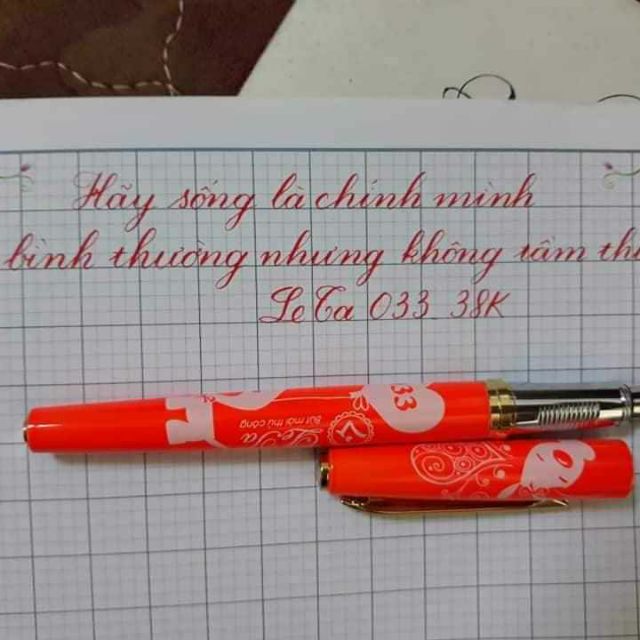 Hãy sống là chính mình
bình thường nhưng không tầm thư
LeTa 033 38K
33
LeTa
Bút mài thủ công